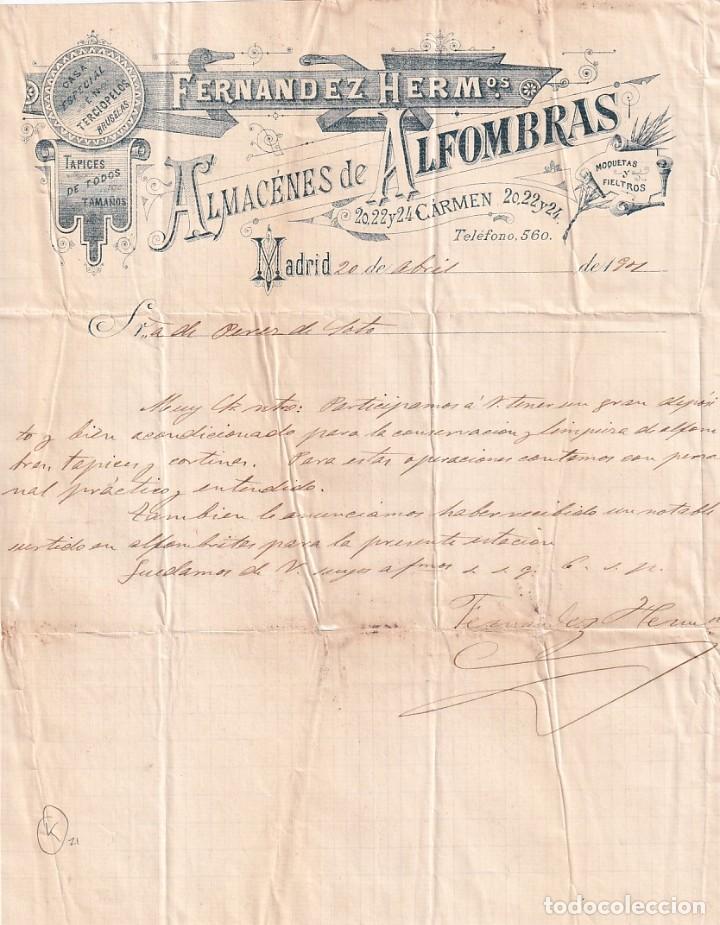 CASA
ESPECIAL
EN
TERCIOPELOS
BRUSELAS
TAPICES
DE TODOS
TAMAÑOS
FERNANDEZ HERMOS
ALMACÉNES de ALFOMBRAS
20,22y24 CÁRMEN 20,22y24
MOQUETAS
Y
FIELTROS
Teléfono, 560.
Madrid 20 de abril de 1901
Sra de Perez de Soto
Muy Sra ntra: Participamos á V. tener un gran depósi
to y bien acondicionado para la conservacion y limpieza de alfom
bras, tapices y cortinas. Para estas operaciones contamos con perso
nal práctico y entendido.
Tambien le anunciamos haber recibido un notable
surtido en alfombritas para la presente estacion
Quedamos de V. suyos afmos s. s. q. b. s. p.
Fernandez Hermos
K
21
todocoleccion
todocoleccion.net